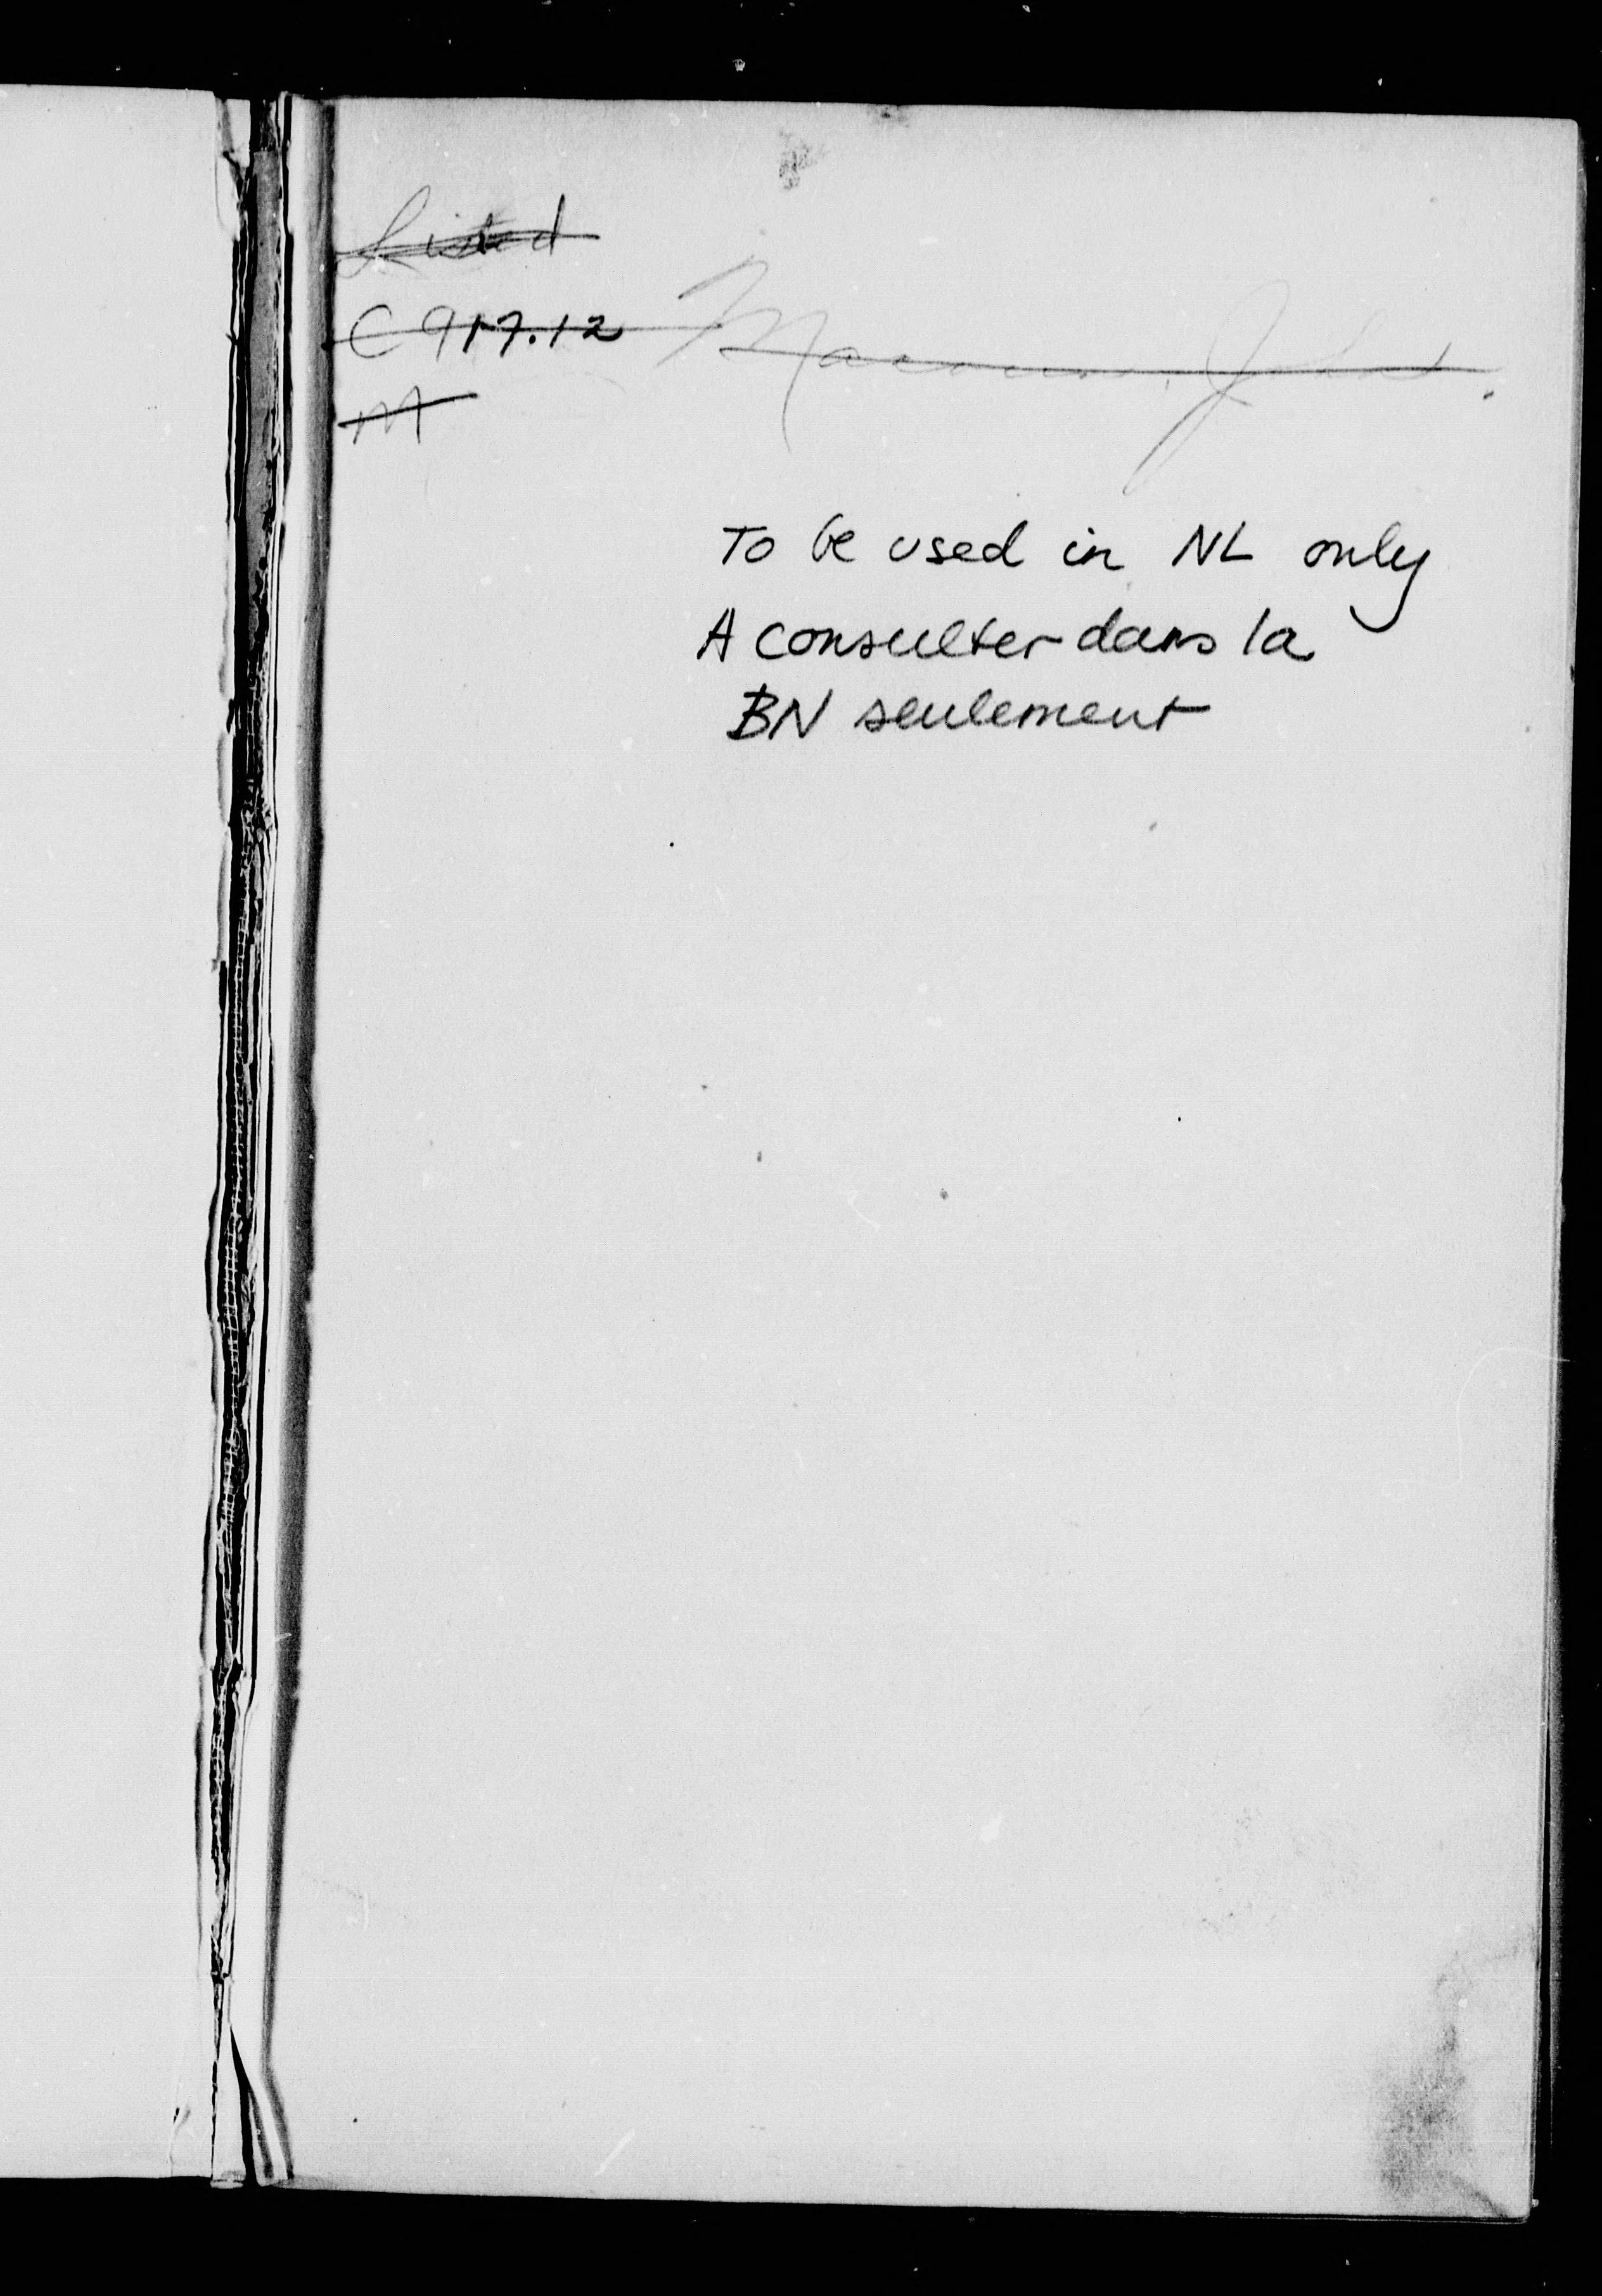 Listed
C 917.12
M
To be used in NL only
A consulter dans la
BN seulement